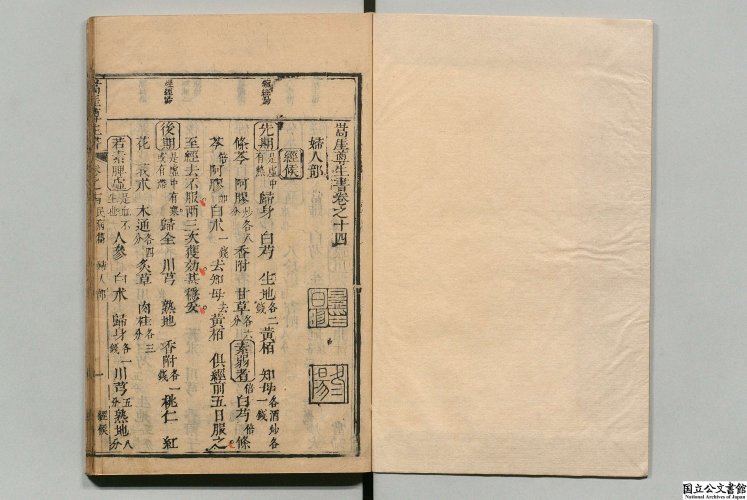 嵩厓尊生書卷之十四
婦人部
經候
先期是虛中有熱 歸身 白芍 生地各二錢 黃栢 知母各酒炒各一錢
條芩 阿膠炒各八分 香附 甘草各六分 素弱者倍白芍 條
芩 阿膠 白朮一錢 去知母 去黃栢 俱經前五日服之
至經去不服兩三次獲効甚穩妥
後期是虛中有寒或有滯 歸全 川芎 熟地 香附各一錢 桃仁 紅
花 莪朮 木通各四分 炙草 肉桂各三分
若素脾虛是血不生也 人參 白朮 歸身各一錢 川芎五分 熟地八分
嵩厓尊生書
婦人部
一
經候
国立公文書館
National Archives of Japan